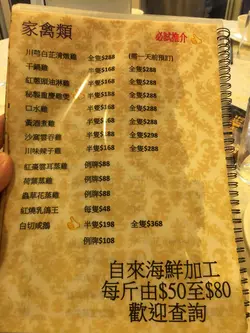 家禽類 必試推介
川芎白芷清燉雞 全隻$288 (需一天前預訂)
干鍋雞 半隻$168 全隻$288
紅蔥頭油淋雞 半隻$168 全隻$288
秘製重慶雞煲 半隻$168 全隻$288
口水雞 半隻$168 全隻$288
黃酒煮雞 半隻$168 全隻$288
沙薑蓉蒸雞 半隻$168 全隻$288
川味辣子雞 半隻$168 全隻$288
紅棗雲耳蒸雞 例牌$88
荷葉蒸雞 例牌$88
蟲草花蒸雞 例牌$88
紅燒乳鴿王 每隻$48
白切咸鵝 半隻$198 全隻$368
例牌$108
自來海鮮加工
每斤由$50至$80
歡迎查詢